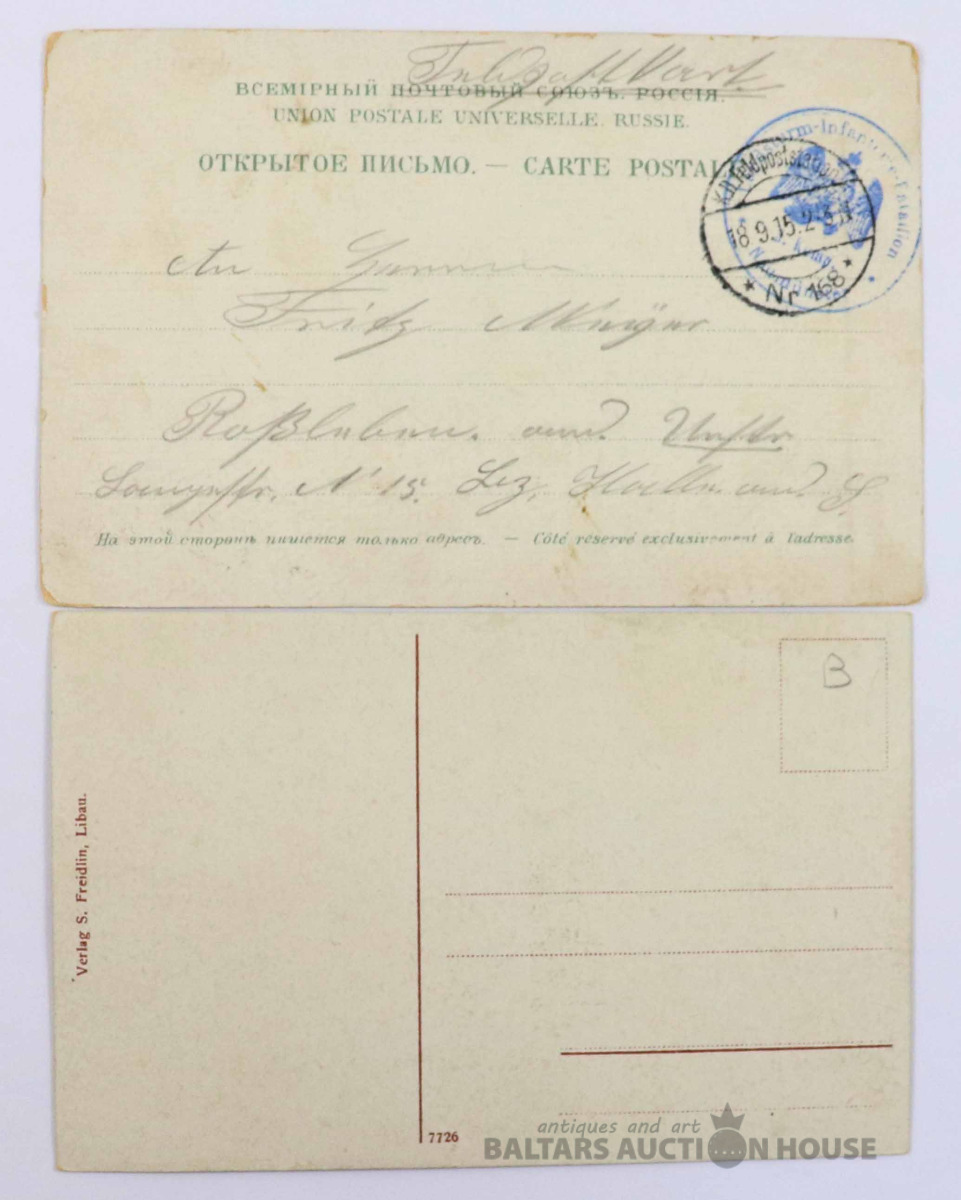 Feldpostkart.
ВСЕМІРНЫЙ ПОЧТОВЫЙ СОЮЗЪ. РОССІЯ.
UNION POSTALE UNIVERSELLE. RUSSIE.
ОТКРЫТОЕ ПИСЬМО. — CARTE POSTAL
Infanterie-Bataillon
Feldpoststation
18.9.15.
* Nr 168 *
An Herrn
Fritz Meÿer
Roßleben. an d. Unstr.
Langestr. N 15. Bez. Halle an d S.
На этой сторонѣ пишется только адресъ. — Côté réservé exclusivement à l'adresse.
B
Verlag S. Freidlin, Libau.
7726
antiques and art
BALTARS AUCTION HOUSE